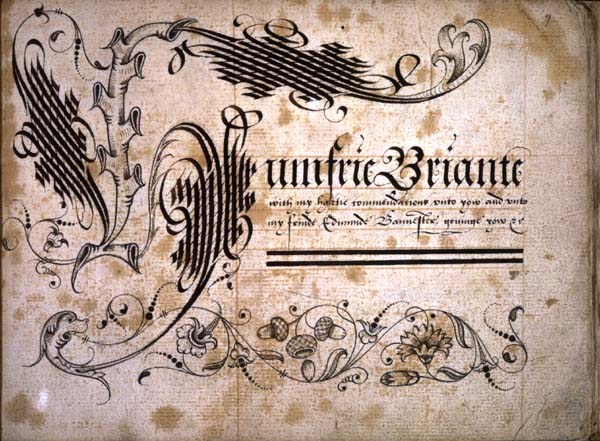 Humfrie Briante
with my hartie commendations vnto yow and vnto
my Edmunde Bannestre geuinge yow &c